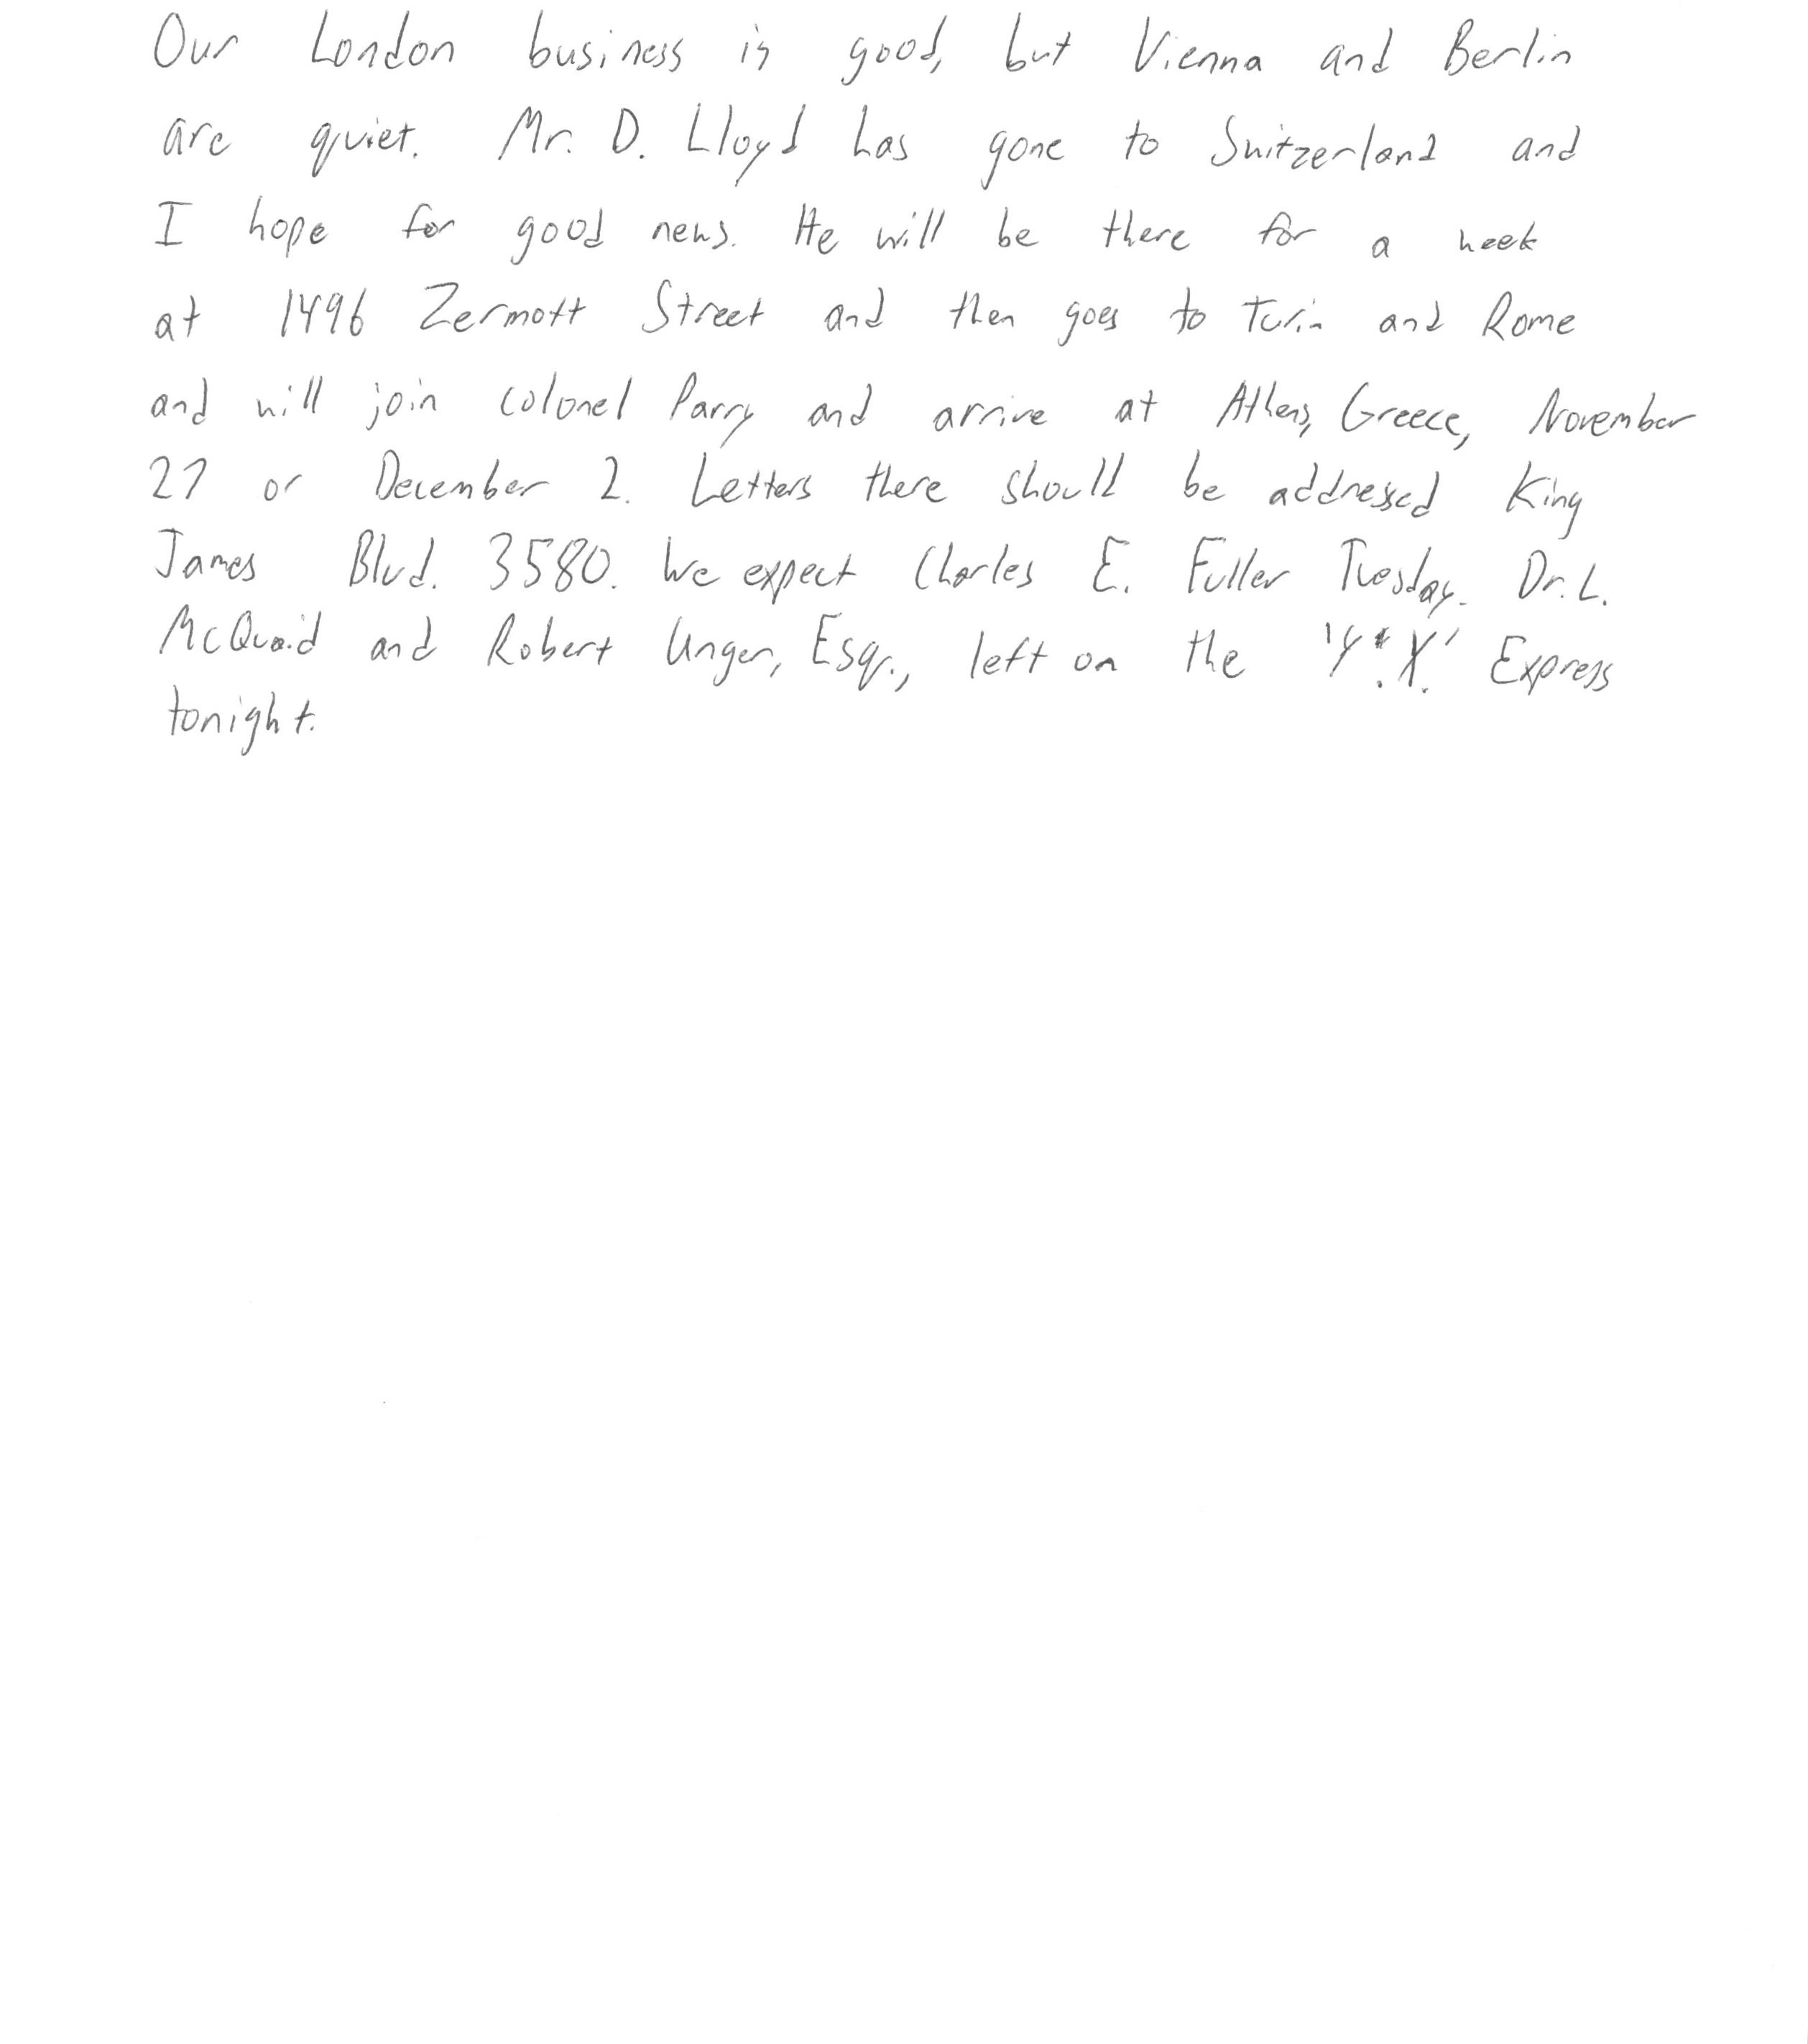 Our London business is good, but Vienna and Berlin
are quiet. Mr. D. Lloyd has gone to Switzerland and
I hope for good news. He will be there for a week
at 1496 Zermott Street and then goes to Turin and Rome
and will join colonel Parry and arrive at Athens, Greece, November
27 or December 2. Letters there should be addressed King
James Blvd. 3580. We expect Charles E. Fuller Tuesday. Dr. L.
McQuaid and Robert Unger, Esqr., left on the 'Y.X.' Express
tonight.